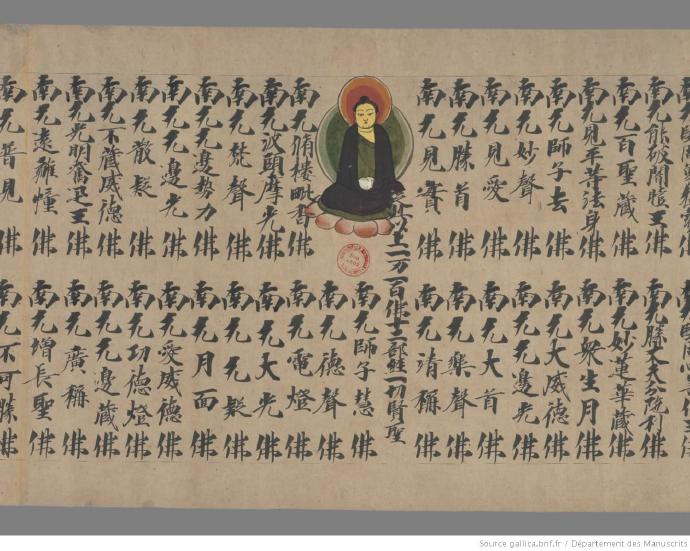 南无能破闇曀王佛 南无勝丈夫分陀利佛
南无百聖藏佛 南无妙蓮華藏佛
南无見平等法身佛 南无衆生月佛
南无師子去佛 南无大威德佛
南无妙聲佛 南无无邊光佛
南无見愛佛 南无大首佛
南无勝首佛 南无樂聲佛
南无見實佛 南无清稱佛
此以上一万一百佛十二部経一切賢聖
南无師子慧佛
南无德聲佛
南无脩樓毗香佛 南无電燈佛
南无波頭摩光佛 南无大光佛
南无梵聲佛 南无无髮佛
南无无邊勢力佛 南无月面佛
南无无邊光佛 南无愛威德佛
南无散髮佛 南无功德燈佛
南无不藏威德佛 南无无邊藏佛
南无光明奮迅王佛 南无廣稱佛
南无遠離幢佛 南无增長聖佛
南无普見佛 南无不可勝佛
Source gallica.bnf.fr / Département des Manuscrits